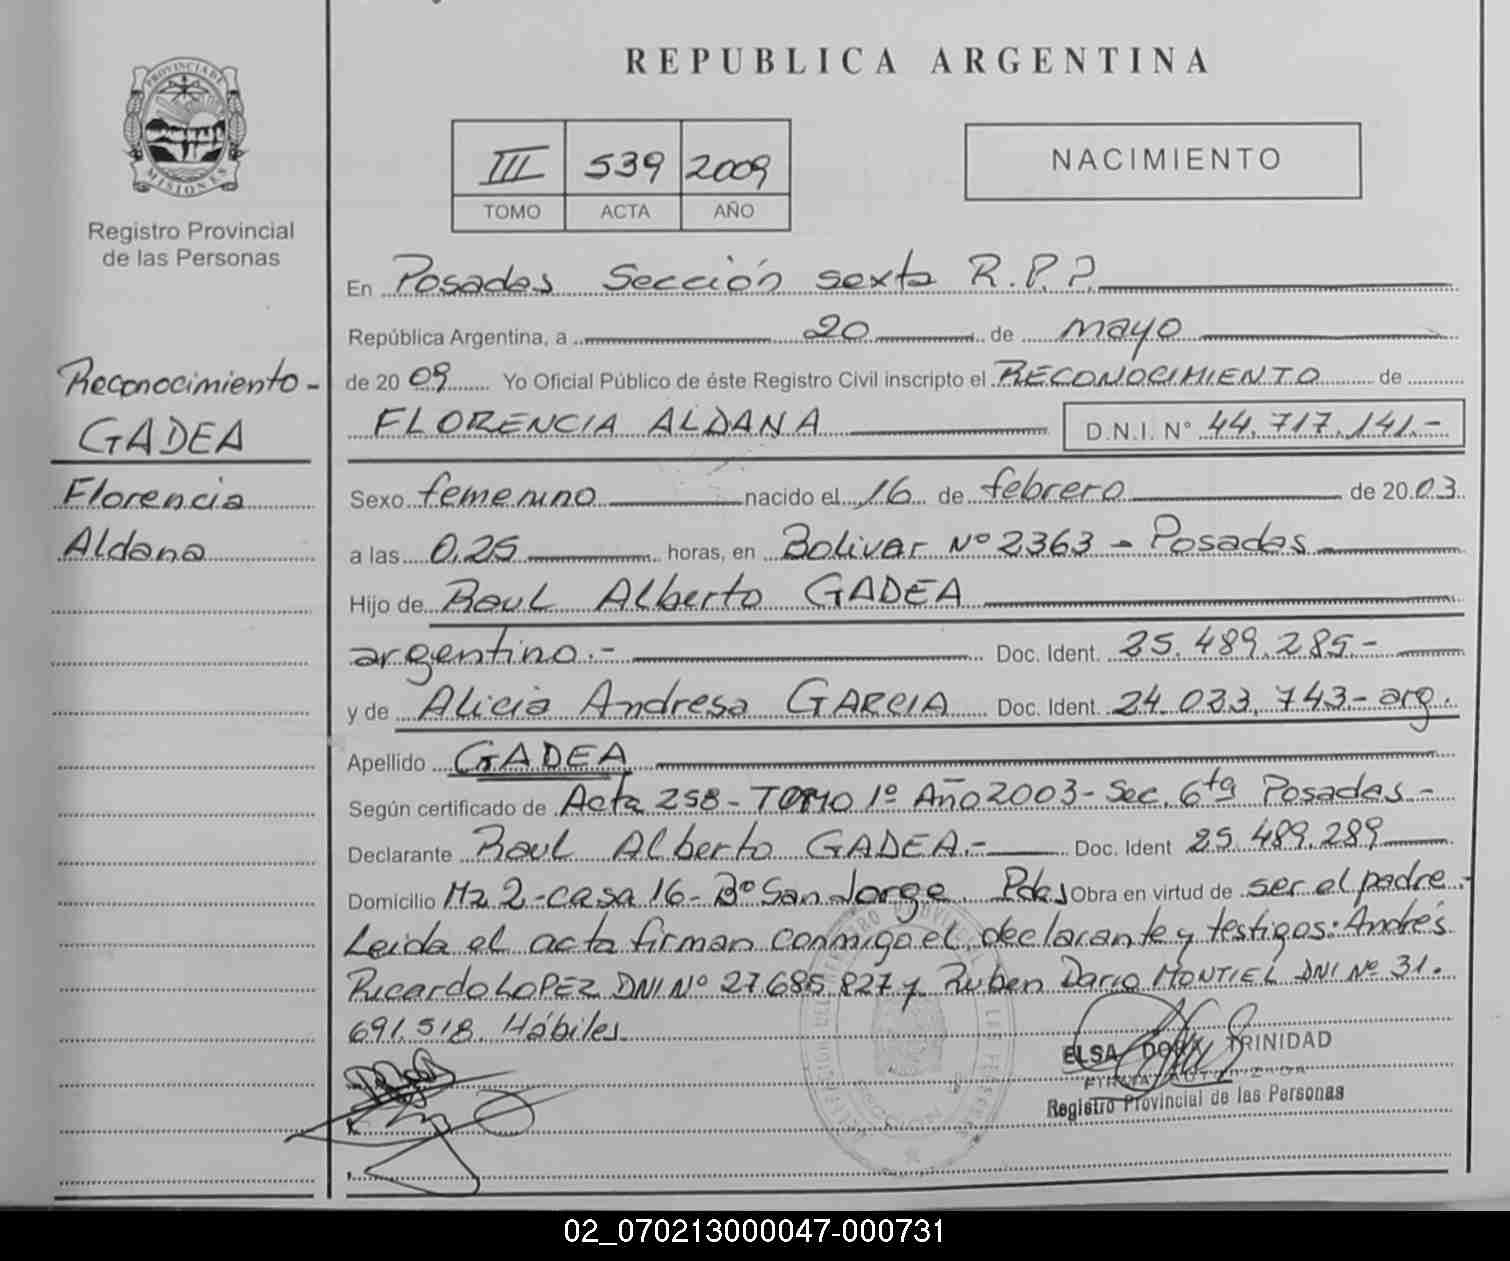 REPUBLICA ARGENTINA
PROVINCIA DE
MISIONES
Registro Provincial
de las Personas
III 539 2009
TOMO ACTA AÑO
NACIMIENTO
Reconocimiento -
GADEA
Florencia
Aldana
En Posadas Sección sexta R.P.P.
República Argentina, a 20 de mayo
de 2009 Yo Oficial Público de éste Registro Civil inscripto el RECONOCIMIENTO de
FLORENCIA ALDANA D.N.I. N° 44.717.141.-
Sexo femenino nacido el 16 de febrero de 2003
a las 0,25 horas, en Bolivar Nº 2363 - Posadas
Hijo de Raul Alberto GADEA
argentino.- Doc. Ident. 25.489.285.-
y de Alicia Andresa GARCIA Doc. Ident. 24.033.743- arg.
Apellido GADEA
Según certificado de Acta 258 - TOMO 1º Año 2003 - Sec. 6ta Posadas -
Declarante Raul Alberto GADEA.- Doc. Ident 25.489.289
Domicilio Mz 2 - casa 16 - Bº San Jorge Pdas Obra en virtud de ser el padre.-
Leida el acta firman conmigo el declarante y testigos: Andrés
Ricardo LOPEZ DNI Nº 27.685.827 y Ruben Dario MONTIEL DNI Nº 31.
691.518. Hábiles
ELSA DORA TRINIDAD
FIRMA AUTORIZADA
Registro Provincial de las Personas
02_070213000047-000731